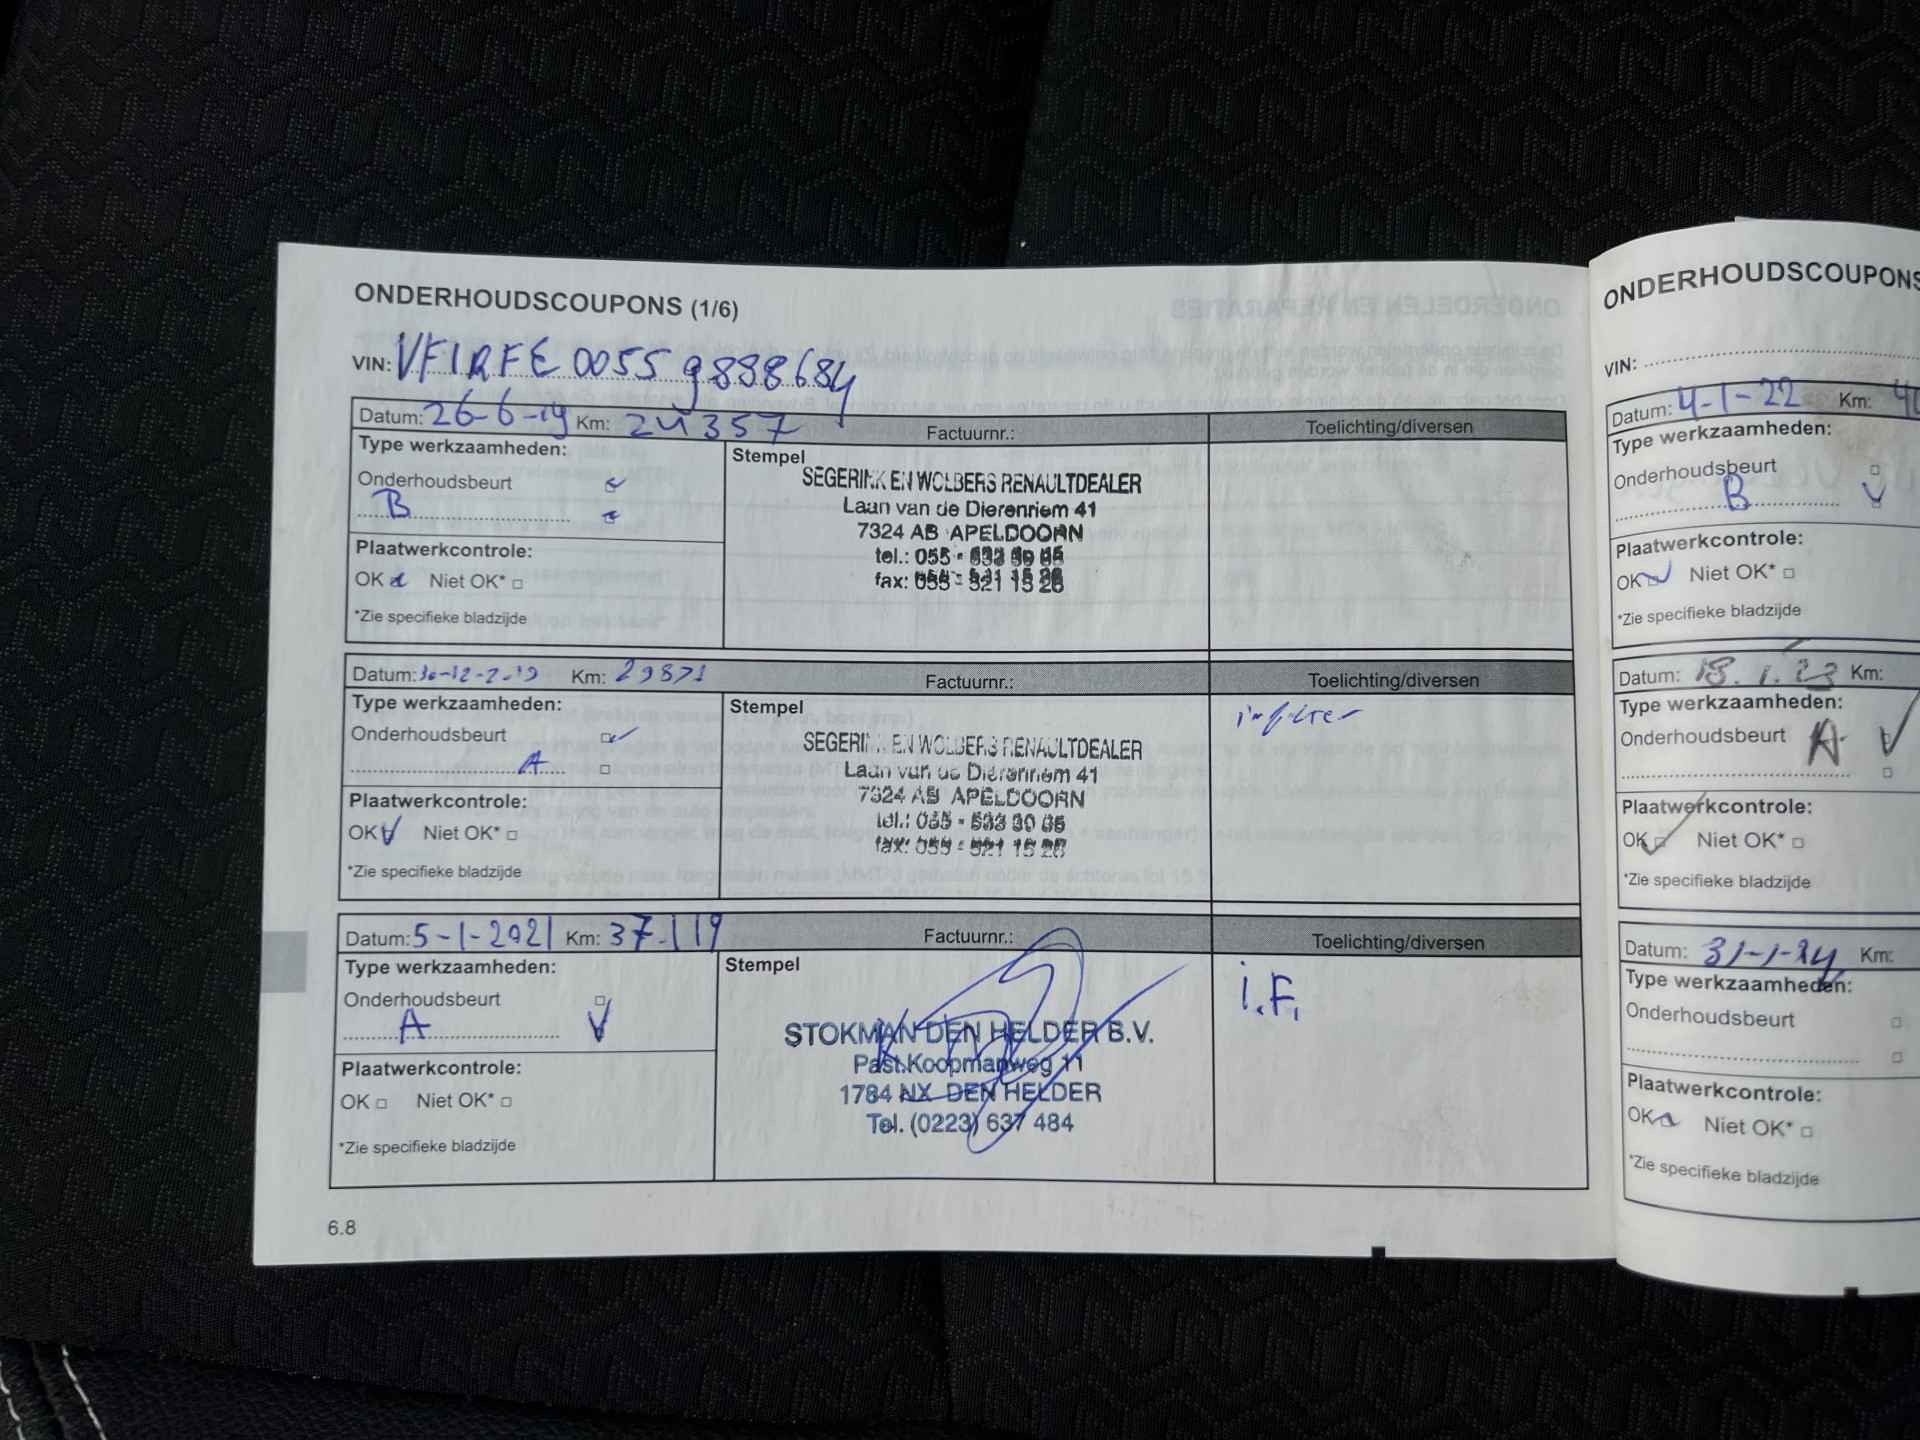 ONDERHOUDSCOUPONS (1/6)
VIN: VF1RFE00559888684
Datum: 26-6-19 Km: 24357 Factuurnr.: Toelichting/diversen
Type werkzaamheden:
Onderhoudsbeurt
B
Plaatwerkcontrole:
OK Niet OK*
*Zie specifieke bladzijde
Stempel
SEGERINK EN WOLBERS RENAULTDEALER
Laan van de Dierenriem 41
7324 AB APELDOORN
tel.: 055 -
fax: 055 - 521 15 26
Datum: Km: 29871 Factuurnr.: Toelichting/diversen
Type werkzaamheden:
Onderhoudsbeurt
A
Plaatwerkcontrole:
OK Niet OK*
*Zie specifieke bladzijde
Stempel
SEGERINK EN WOLBERS RENAULTDEALER
Laan van de Dierenriem 41
7324 AB APELDOORN
tel.: 055 - 533 30 
fax: 055 - 521 15 26
Datum: 5-1-2021 Km: 37.119 Factuurnr.: Toelichting/diversen
Type werkzaamheden:
Onderhoudsbeurt
A
Plaatwerkcontrole:
OK Niet OK*
*Zie specifieke bladzijde
Stempel
STOKMAN DEN HELDER B.V.
Past.Koopmanweg 11
1784 NX DEN HELDER
Tel. (0223) 637 484
i.F.
6.8
ONDERHOUDSCOUPONS
VIN:
Datum: 4-1-22 Km:
Type werkzaamheden:
Onderhoudsbeurt
B
Plaatwerkcontrole:
OK Niet OK*
*Zie specifieke bladzijde
Datum: 18.1.23 Km:
Type werkzaamheden:
Onderhoudsbeurt A
Plaatwerkcontrole:
OK Niet OK*
*Zie specifieke bladzijde
Datum: 31-1-24 Km:
Type werkzaamheden:
Onderhoudsbeurt
Plaatwerkcontrole:
OK Niet OK*
*Zie specifieke bladzijde